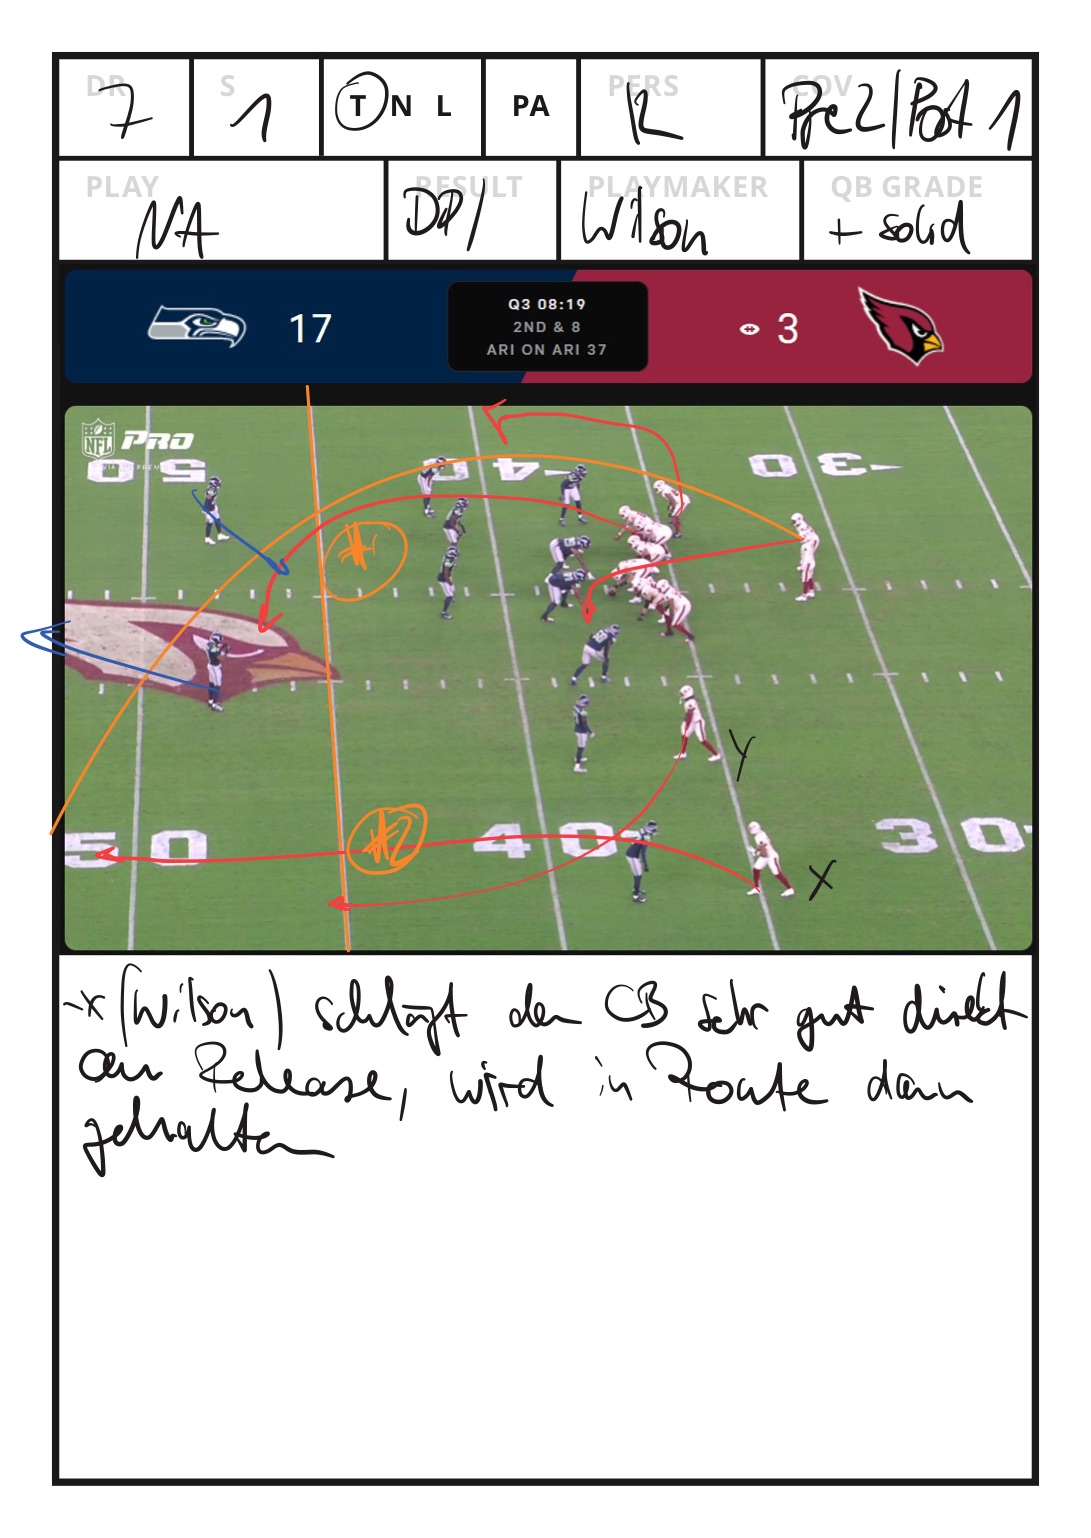 DR 7 S 1 T N L PA PERS 12 COV Pre 2/Post 1
PLAY NA RESULT DPI PLAYMAKER Wilson QB GRADE + solid
17 Q3 08:19 3
2ND & 8
ARI ON ARI 37
NFL PRO
50 40 30
#1
Y
50 #2 40 30
X
-X (Wilson) schlägt den CB sehr gut direkt
am Release, wird in Route dann
gehalten